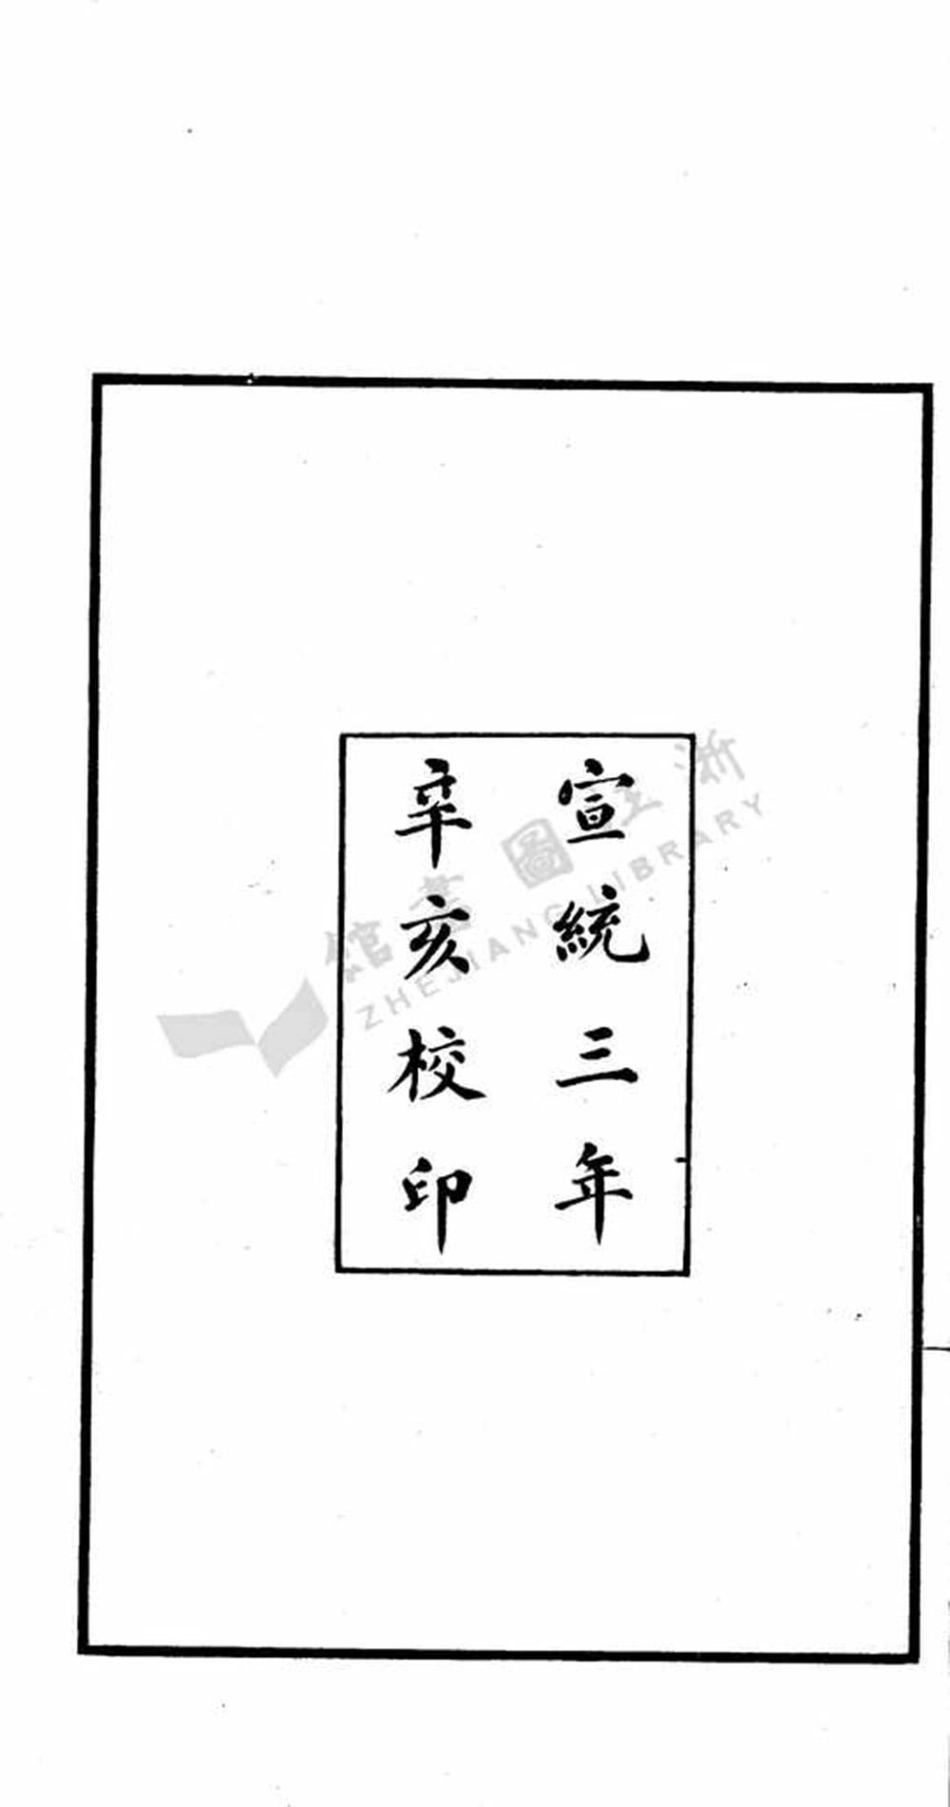 宣統三年
辛亥校印
浙江圖書館
ZHEJIANG LIBRARY